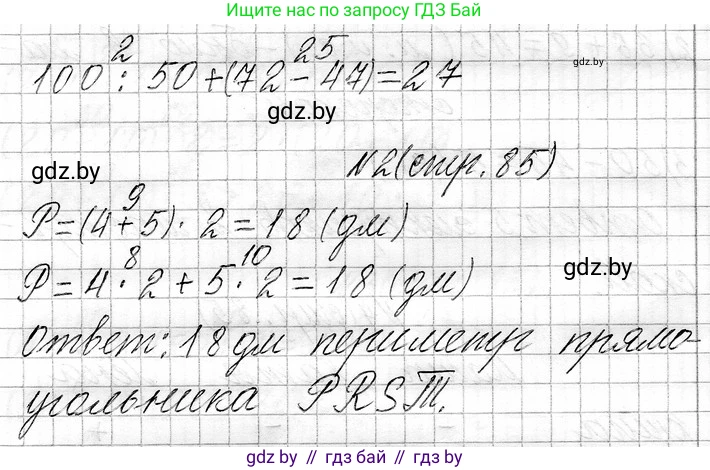 Ищите нас по запросу ГДЗ Бай
2 25
100 : 50 + (72 - 47) = 27
gdz.by
gdz.by
gdz.by
№2 (стр. 85)
9
P = (4 + 5) · 2 = 18 (дм)
8 10
P = 4 · 2 + 5 · 2 = 18 (дм)
gdz.by
Ответ: 18 дм периметр прямо-
угольника PRST.
gdz.by // гдз бай // gdz.by